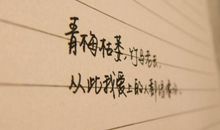 青梅枯萎，竹马老去，
从此我爱上的人都